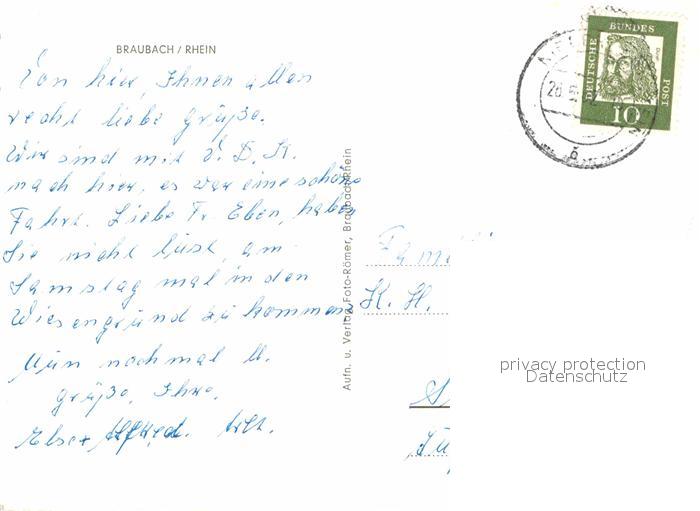 BRAUBACH / RHEIN
Von hier, Ihnen allen
recht liebe Grüße.
Wir sind mit d. D. K.
nach hier, es war eine schöne
Fahrt. Liebe Fr. Eben, haben
Sie nicht lust, am
Samstag mal in den
Wiesengrund zu kommen
Nun nochmal u.
grüße, Ihre.
Else +
Aufn. u. Verlag Foto-Römer, Braubach/Rhein
DEUTSCHE
BUNDES
POST
10
Fami
K. H.
privacy protection
Datenschutz